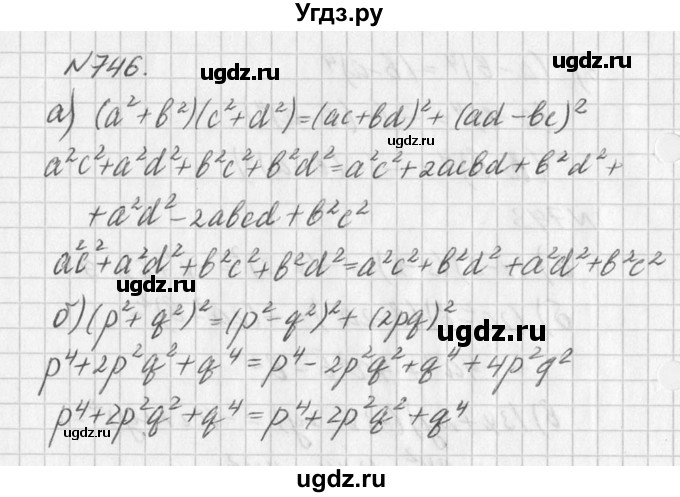 Угдз.ру
№746.
ugdz.ru
ugdz.ru
а) (a²+b²)(c²+d²)=(ac+bd)²+(ad-bc)²
a²c²+a²d²+b²c²+b²d²=a²c²+2acbd+b²d²+
+a²d²-2abcd+b²c²
ugdz.ru
a²c²+a²d²+b²c²+b²d²=a²c²+b²d²+a²d²+b²c²
ugdz.ru
б) (p²+q²)²=(p²-q²)²+(2pq)²
ugdz.ru
p⁴+2p²q²+q⁴=p⁴-2p²q²+q⁴+4p²q²
p⁴+2p²q²+q⁴=p⁴+2p²q²+q⁴
ugdz.ru
ugdz.ru
ugdz.ru